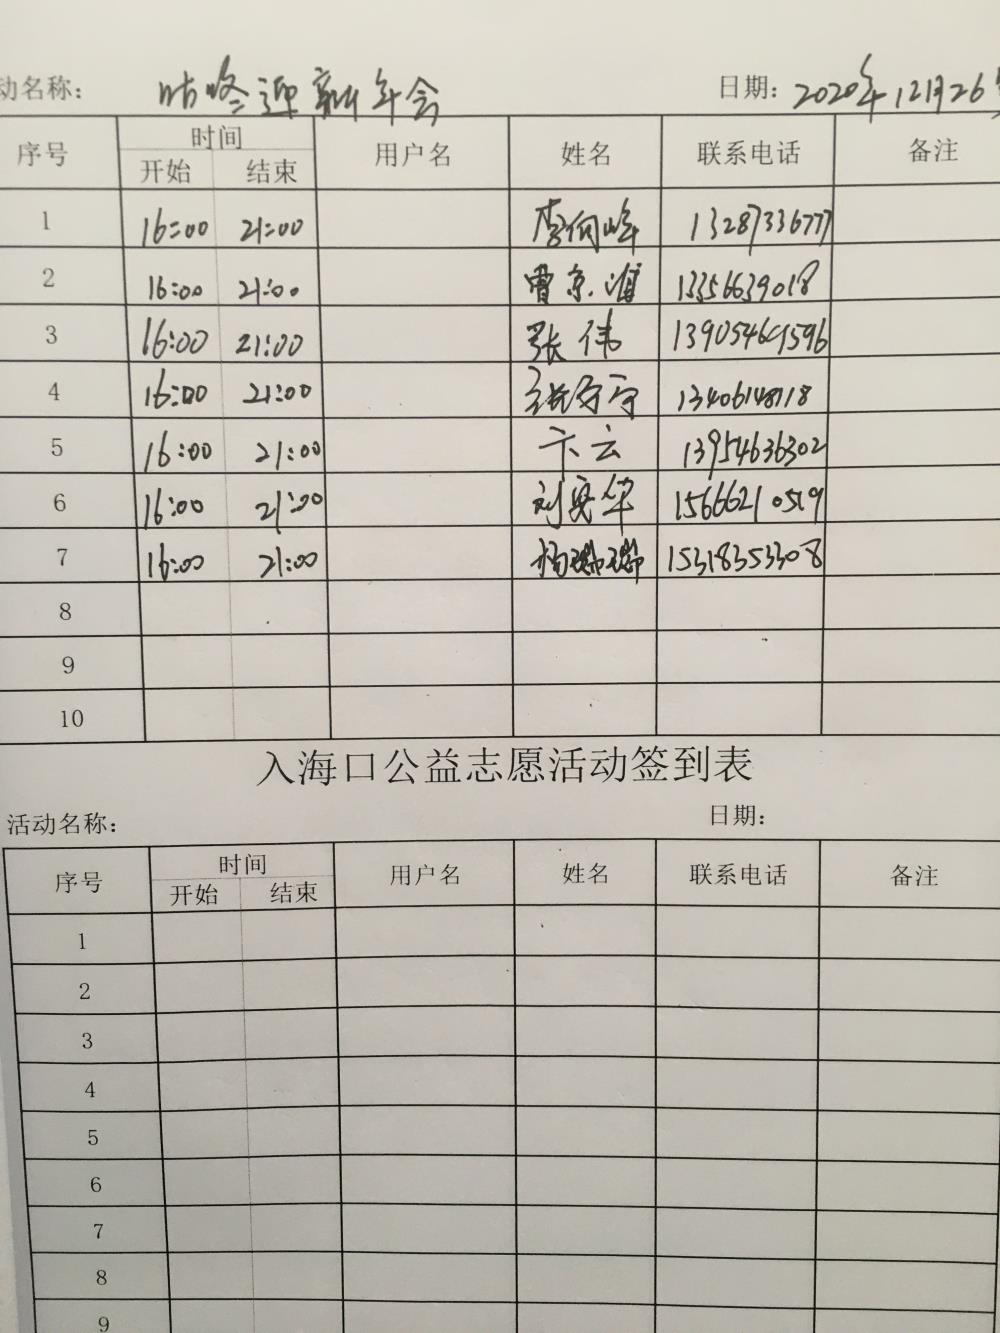 动名称： 咕咚迎新年会 日期：2020年12月26
序号 时间 用户名 姓名 联系电话 备注
开始 结束
1 16:00 21:00 李向峰 13287336777
2 16:00 21:00 曹京 13356639018
3 16:00 21:00 张伟
4 16:00 21:00 13406148118
5 16:00 21:00 卞云 13954636302
6 16:00 21:00 刘英华 15666210519
7 16:00 21:00 杨璐璐 15318353308
8
9
10
入海口公益志愿活动签到表
活动名称： 日期：
序号 时间 用户名 姓名 联系电话 备注
开始 结束
1
2
3
4
5
6
7
8
9